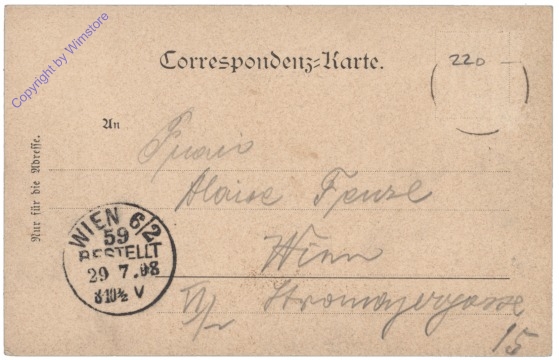 Copyright by Wimstore
Correspondenz-Karte.
220
An
Nur für die Adresse.
Frau
Aloise Fenzl
Wien
VI/2 Stromayergasse
15
WIEN 6/2
59
BESTELLT
29 7.98
8-10½ V